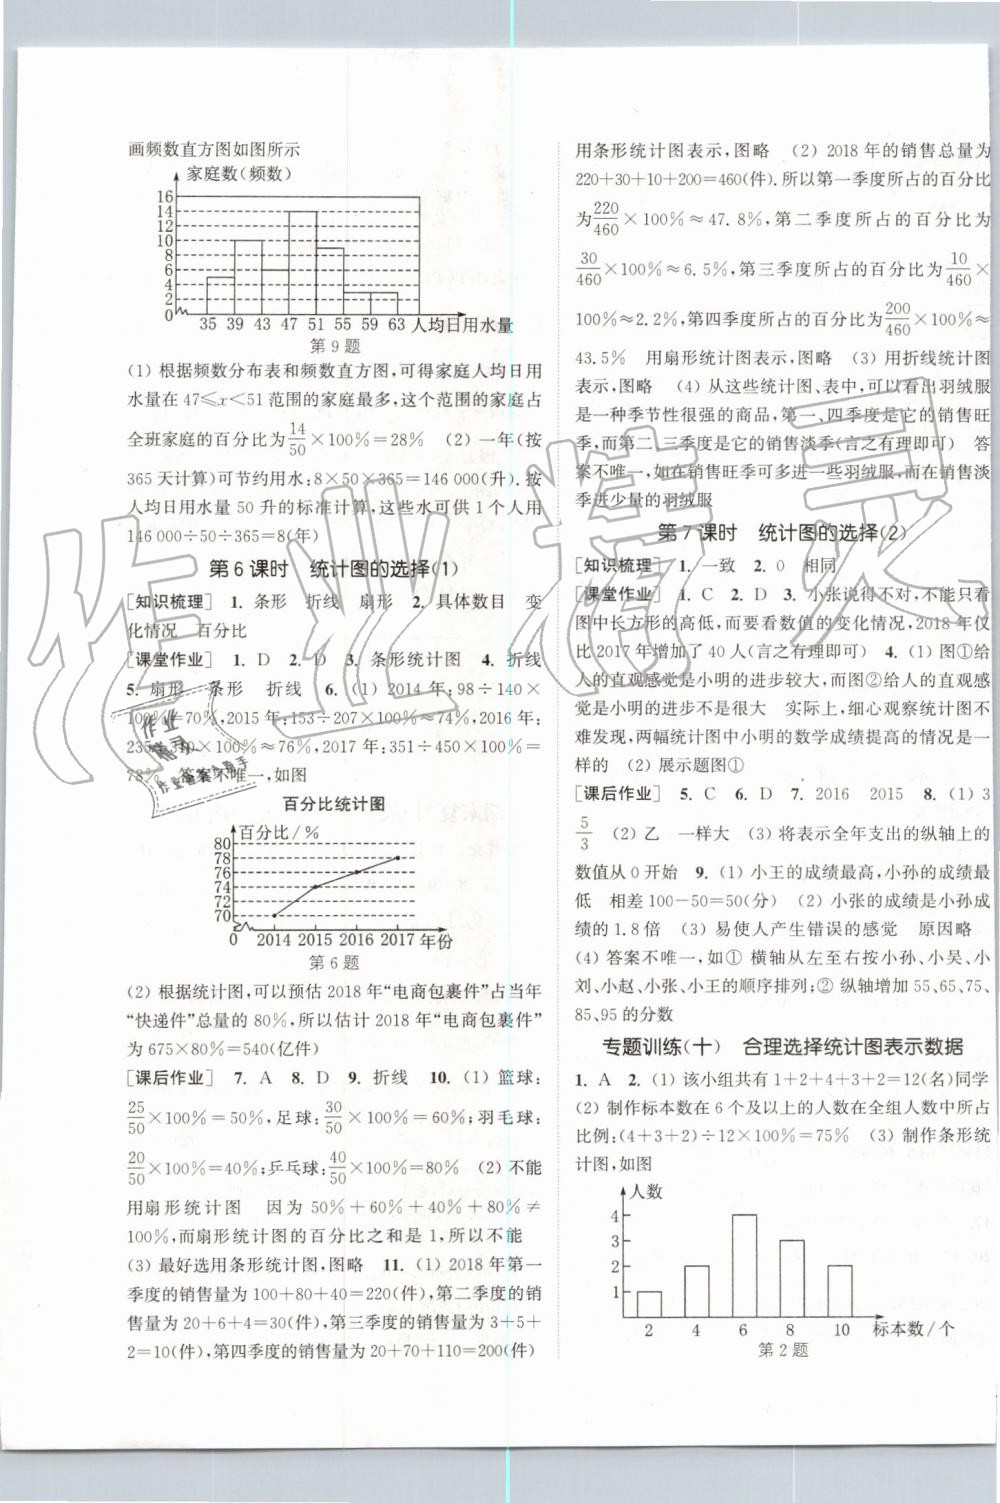 画频数直方图如图所示
家庭数(频数)
16
14
12
10
8
6
4
2
0
35 39 43 47 51 55 59 63 人均日用水量
第9题
(1) 根据频数分布表和频数直方图,可得家庭人均日用
水量在 47≤x<51 范围的家庭最多,这个范围的家庭占
全班家庭的百分比为14/50×100%=28% (2) 一年(按
365天计算)可节约用水:8×50×365=146 000(升).按
人均日用水量 50 升的标准计算,这些水可供 1 个人用
146 000÷50÷365=8(年)
第6课时 统计图的选择(1)
[知识梳理] 1. 条形 折线 扇形 2. 具体数目 变
化情况 百分比
[课堂作业] 1. D 2. D 3. 条形统计图 4. 折线
5. 扇形 条形 折线 6. (1) 2014年:98÷140×
100%=70%,2015年:153÷207×100%≈74%,2016年:
235÷310×100%≈76%,2017年:351÷450×100%=
78% 答案不唯一,如图
百分比统计图
百分比/%
80
78
76
74
72
70
0 2014 2015 2016 2017 年份
第6题
(2) 根据统计图,可以预估 2018 年“电商包裹件”占当年
“快递件”总量的 80%,所以估计 2018 年“电商包裹件”
为 675×80%=540(亿件)
[课后作业] 7. A 8. D 9. 折线 10. (1) 篮球:
25/50×100%=50%,足球:30/50×100%=60%;羽毛球:
20/50×100%=40%;乒乓球:40/50×100%=80% (2) 不能
用扇形统计图 因为 50%+60%+40%+80%≠
100%,而扇形统计图的百分比之和是 1,所以不能
(3) 最好选用条形统计图,图略 11. (1) 2018 年第一
季度的销售量为 100+80+40=220(件),第二季度的销
售量为 20+6+4=30(件),第三季度的销售量为 3+5+
2=10(件),第四季度的销售量为 20+70+110=200(件)
用条形统计图表示,图略 (2) 2018 年的销售总量为
220+30+10+200=460(件).所以第一季度所占的百分比
为220/460×100%≈47.8%,第二季度所占的百分比为
30/460×100%≈6.5%,第三季度所占的百分比为10/460×
100%≈2.2%,第四季度所占的百分比为200/460×100%≈
43.5% 用扇形统计图表示,图略 (3) 用折线统计图
表示,图略 (4) 从这些统计图、表中,可以看出羽绒服
是一种季节性很强的商品,第一、四季度是它的销售旺
季,而第二、三季度是它的销售淡季(言之有理即可) 答
案不唯一,如在销售旺季可多进一些羽绒服,而在销售淡
季进少量的羽绒服
第7课时 统计图的选择(2)
[知识梳理] 1. 一致 2. 0 相同
[课堂作业] 1. C 2. D 3. 小张说得不对,不能只看
图中长方形的高低,而要看数值的变化情况,2018年仅
比2017年增加了 40 人(言之有理即可) 4. (1) 图①给
人的直观感觉是小明的进步较大,而图②给人的直观感
觉是小明的进步不是很大 实际上,细心观察统计图不
难发现,两幅统计图中小明的数学成绩提高的情况是一
样的 (2) 展示题图①
[课后作业] 5. C 6. D 7. 2016 2015 8. (1) 3
5/3 (2) 乙 一样大 (3) 将表示全年支出的纵轴上的
数值从 0 开始 9. (1) 小王的成绩最高,小孙的成绩最
低 相差100-50=50(分) (2) 小张的成绩是小孙成
绩的 1.8 倍 (3) 易使人产生错误的感觉 原因略
(4) 答案不唯一,如① 横轴从左至右按小孙、小吴、小
刘、小赵、小张、小王的顺序排列;② 纵轴增加 55、65、75、
85、95 的分数
专题训练(十) 合理选择统计图表示数据
1. A 2. (1) 该小组共有 1+2+4+3+2=12(名)同学
(2) 制作标本数在 6 个及以上的人数在全组人数中所占
比例:(4+3+2)÷12×100%=75% (3) 制作条形统
计图,如图
人数
4
3
2
1
2 4 6 8 10 标本数/个
第2题
作业精灵
作业
精灵